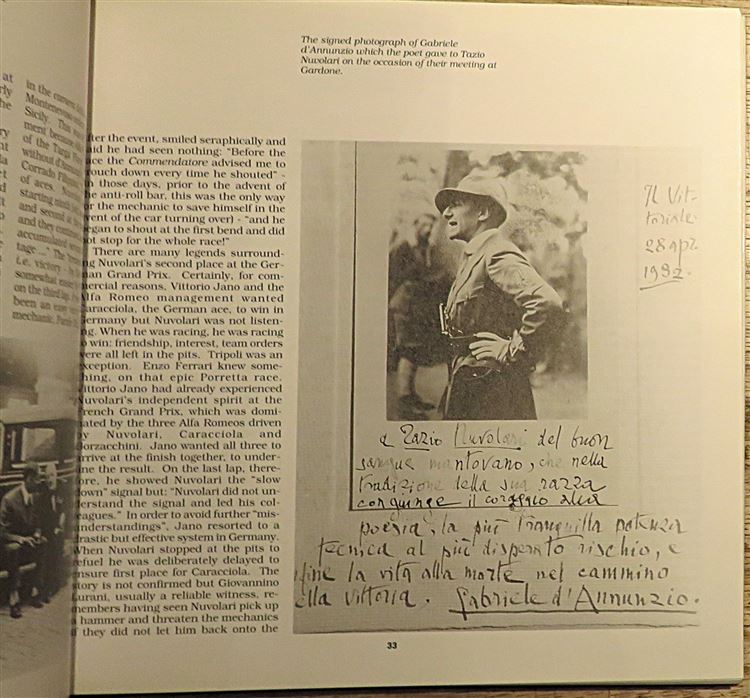 The signed photograph of Gabriele
d'Annunzio which the poet gave to Tazio
Nuvolari on the occasion of their meeting at
Gardone.
at
he
in the
Montenevoso
Sicily. This
ment because
of the Targa
without
Corrado
of aces.
starting
and second at
and they
accumulated
tage..." The
i.e. victory -
somewhat
on the third lap
been an easy
mechanic.
fter the event, smiled seraphically and
aid he had seen nothing: "Before the
ace the Commendatore advised me to
rouch down every time he shouted" -
n those days, prior to the advent of
he anti-roll bar, this was the only way
or the mechanic to save himself in the
vent of the car turning over) - "and he
egan to shout at the first bend and did
ot stop for the whole race!"
There are many legends surround-
ng Nuvolari's second place at the Ger-
an Grand Prix. Certainly, for com-
mercial reasons, Vittorio Jano and the
Alfa Romeo management wanted
Caracciola, the German ace, to win in
ermany but Nuvolari was not listen-
ng. When he was racing, he was racing
o win: friendship, interest, team orders
ere all left in the pits. Tripoli was an
xception. Enzo Ferrari knew some-
hing, on that epic Porretta race.
Vittorio Jano had already experienced
Nuvolari's independent spirit at the
rench Grand Prix, which was domi-
ated by the three Alfa Romeos driven
y Nuvolari, Caracciola and
orzacchini. Jano wanted all three to
rrive at the finish together, to under-
ine the result. On the last lap, there-
ore, he showed Nuvolari the "slow
own" signal but: "Nuvolari did not un-
erstand the signal and led his col-
eagues." In order to avoid further "mis-
nderstandings", Jano resorted to a
rastic but effective system in Germany.
When Nuvolari stopped at the pits to
efuel he was deliberately delayed to
nsure first place for Caracciola. The
tory is not confirmed but Giovannino
urani, usually a reliable witness, re-
members having seen Nuvolari pick up
a hammer and threaten the mechanics
f they did not let him back onto the
Il Vit-
toriale
28 apr.
1932.
a Tazio Nuvolari del buon
sangue mantovano, che nella
tradizione della sua razza
congiunge il coraggio alla
poesia, la più tranquilla potenza
tecnica al più disperato rischio, e
fine la vita alla morte nel cammino
ella vittoria. Gabriele d'Annunzio.
33